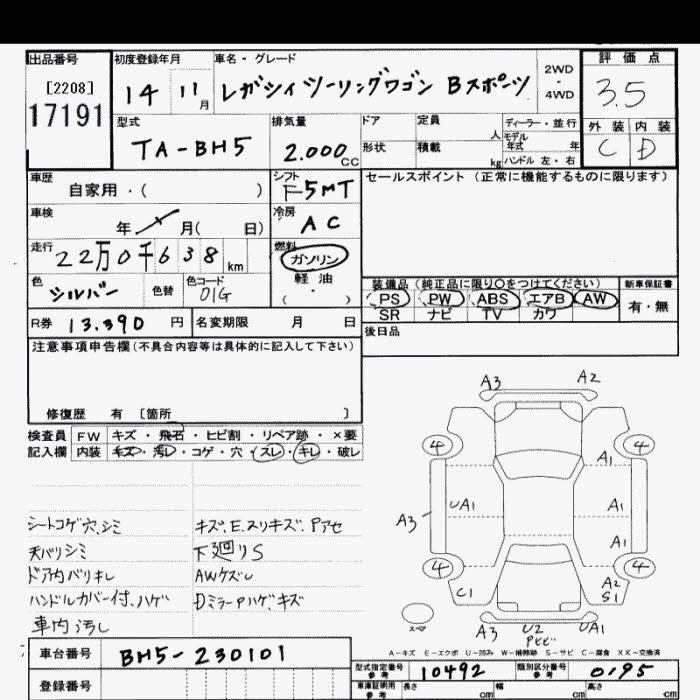 出品番号 初度登録年月 車名・グレード 評価点
[2208]
17191
14 11月 レガシィツーリングワゴン Bスポーツ 2WD・4WD 3.5
型式 排気量 ドア 定員 人 ディーラー・並行 外装 内装
TA-BH5 2.000cc 形状 積載 kg モデル年式 年 C D
ハンドル 左・右
車歴 シフト セールスポイント (正常に機能するものに限ります)
自家用・( ) F5MT
車検 年 月( 日) 冷房 AC
走行 22万0千638km 燃料 ガソリン
色 シルバー 色替 色コード 01G 軽油
( ・ )
装備品(純正品に限り○をつけてください) 新車保証書
PS PW ABS エアB AW 有・無
SR ナビ TV カワ
R券 13.390円 名変期限 月 日 後日品
注意事項申告欄(不具合内容等は具体的に記入して下さい)
修復歴 有 [箇所 ]
検査員 FW キズ・飛石・ヒビ割・リペア跡・×要
記入欄 内装 キズ・汚レ・コゲ・穴・スレ・キレ・破レ
シートコゲ穴、シミ キズ、E、スリキズ、Pアセ
天バリシミ 下廻りS
ドア内バリキレ AWケズレ
ハンドルカバー付、ハゲ DミラーPハゲ、キズ
車内汚し
A3 A2
4 4
A1
A3 UA1 A1
A1
4 4
C1 A2
S1
スペア A3 U2 UA1
Pヒビ
A-キズ E-エクボ U-凹み W-補修跡 S-サビ C-腐食 XX-交換済
車台番号 BH5-230101
型式指定番号 参考 10492 類別区分番号 参考 0195
登録番号 車庫証明用 参考 長さ cm 幅 cm 高さ cm